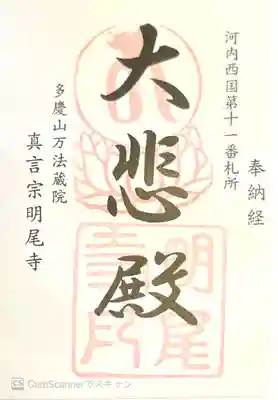 奉納経
河内西国第十一番札所
大悲殿
多慶山万法蔵院
真言宗明尾寺
明尾
寺印
CS CamScannerでスキャン